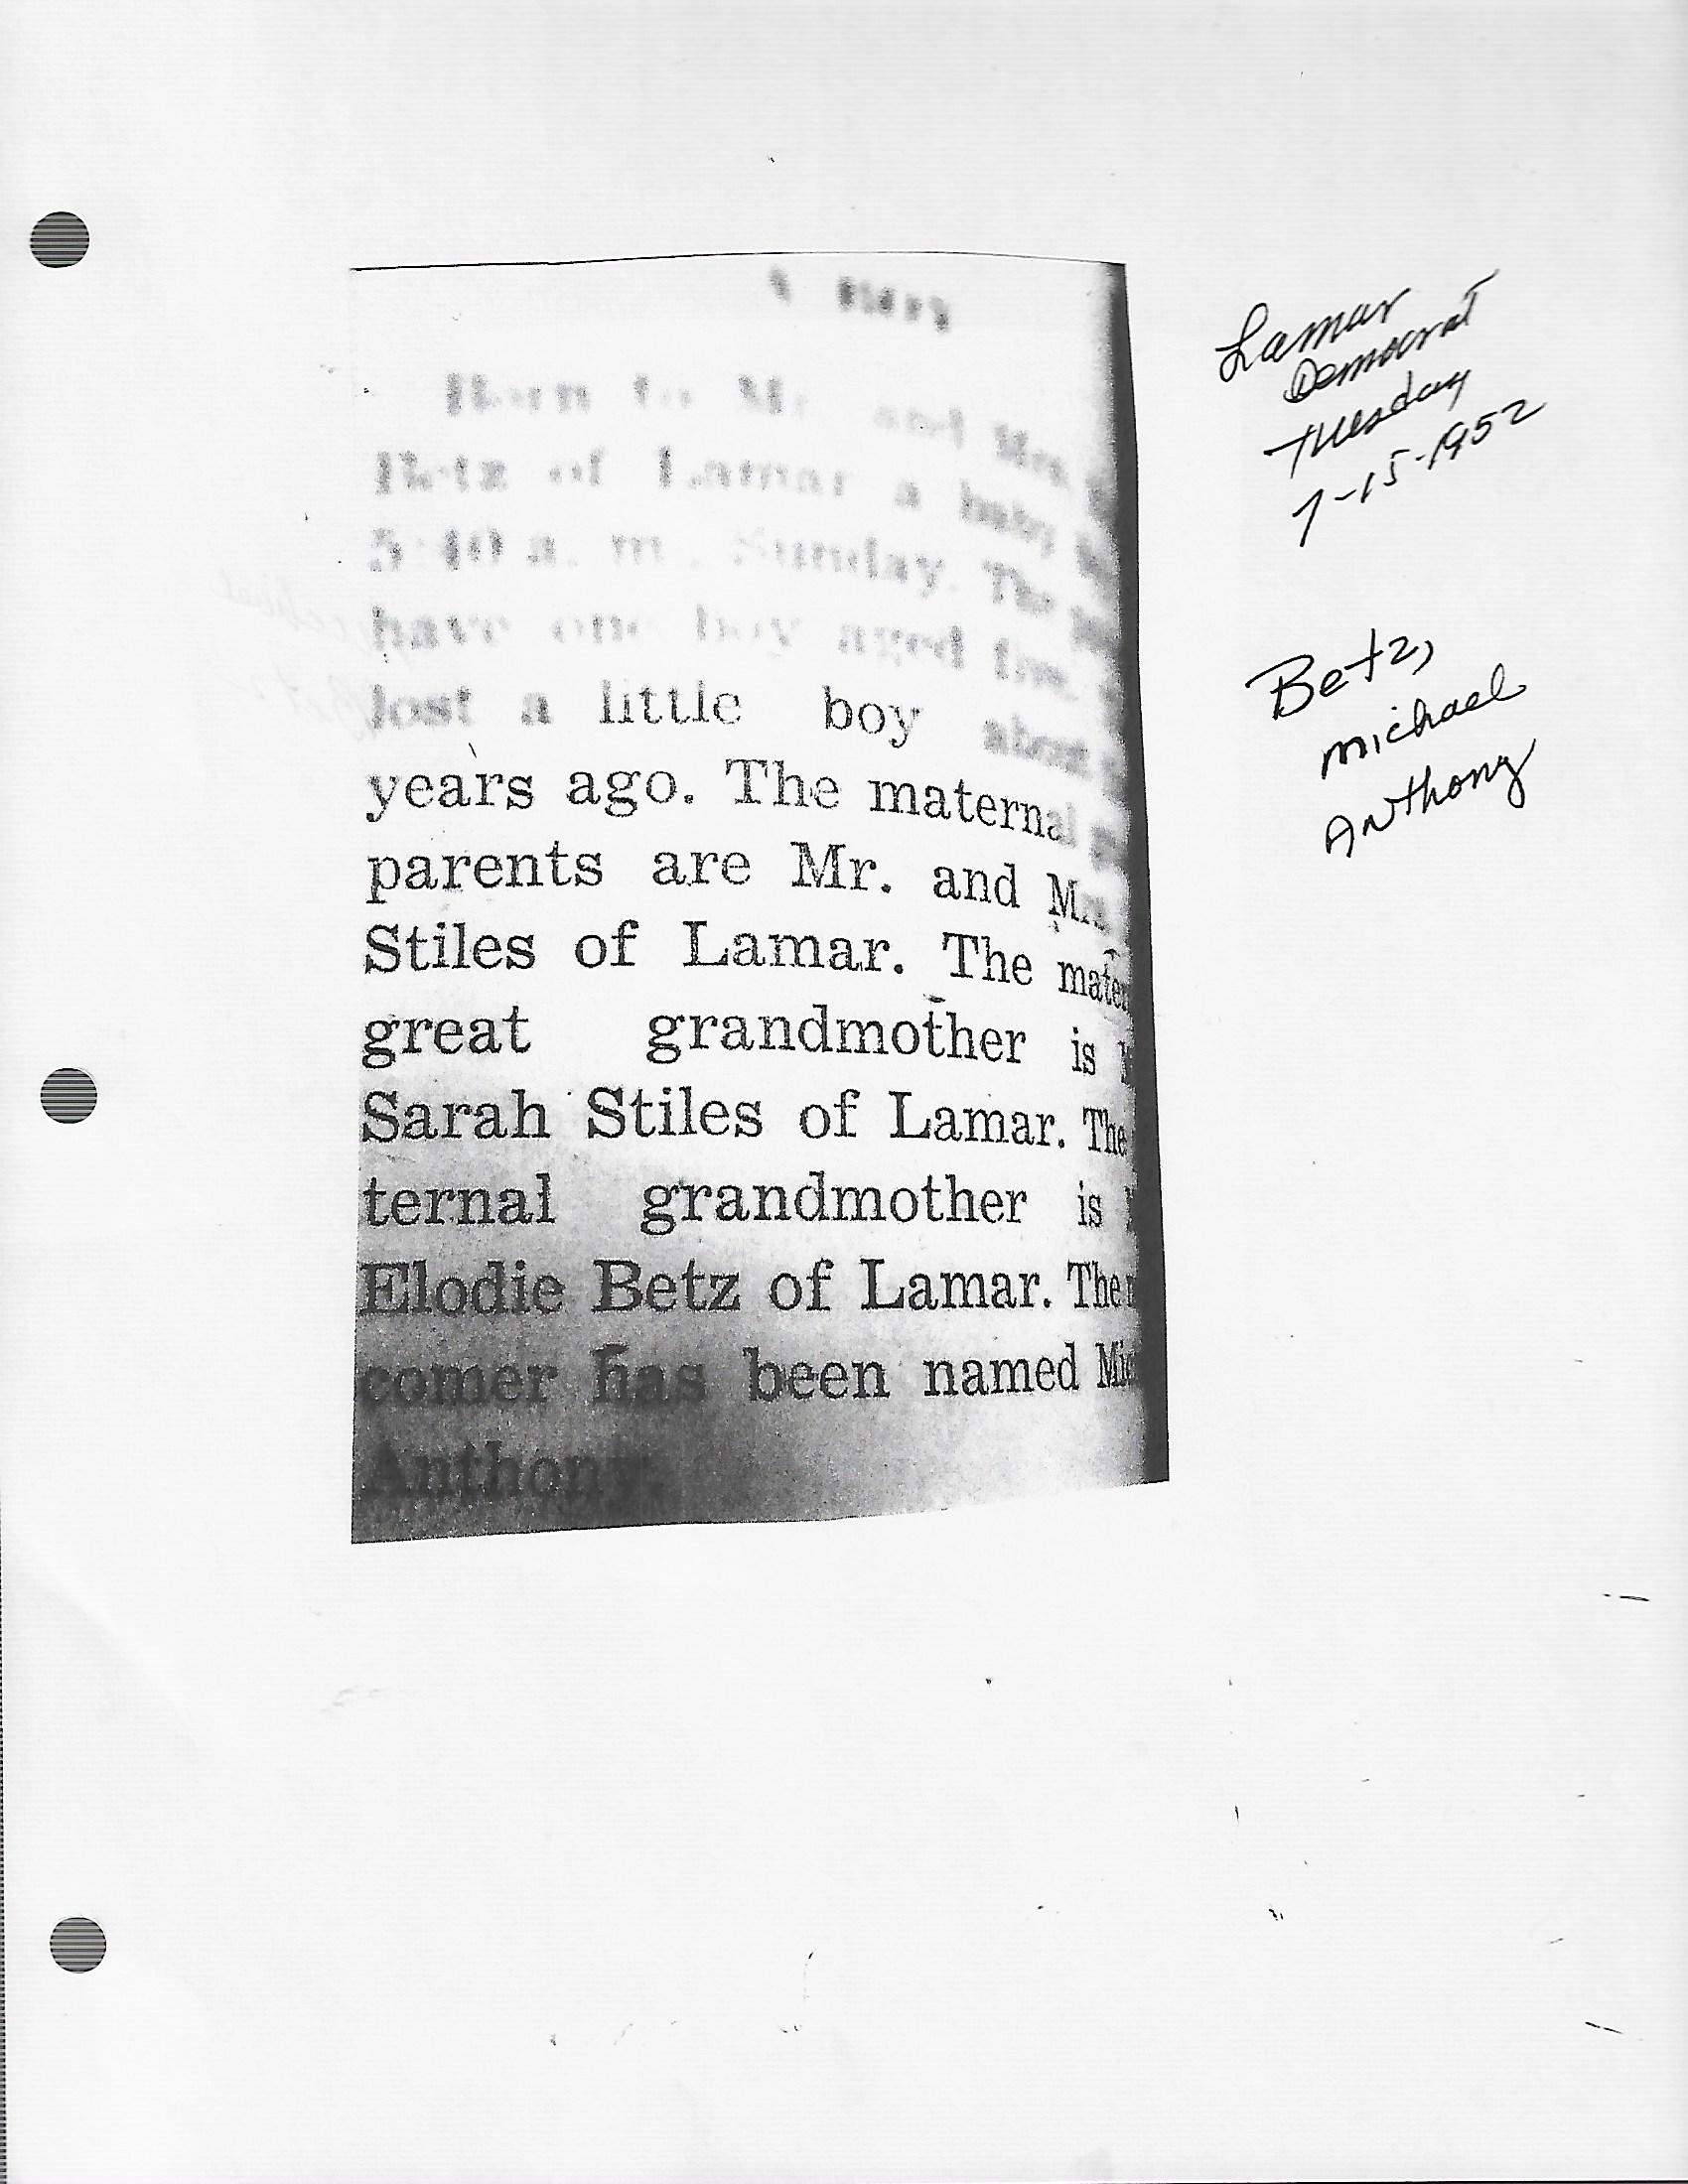 Born to Mr. and Mrs.
Betz of Lamar a baby
5:40 a. m., Sunday. The
have one boy aged
lost a little boy about
years ago. The maternal
parents are Mr. and Mrs.
Stiles of Lamar. The mater
great grandmother is
Sarah Stiles of Lamar. The
ternal grandmother is
Elodie Betz of Lamar. The
comer has been named Mic
Anthony.
Lamar
Democrat
Tuesday
7-15-1952
Betz,
Michael
Anthony